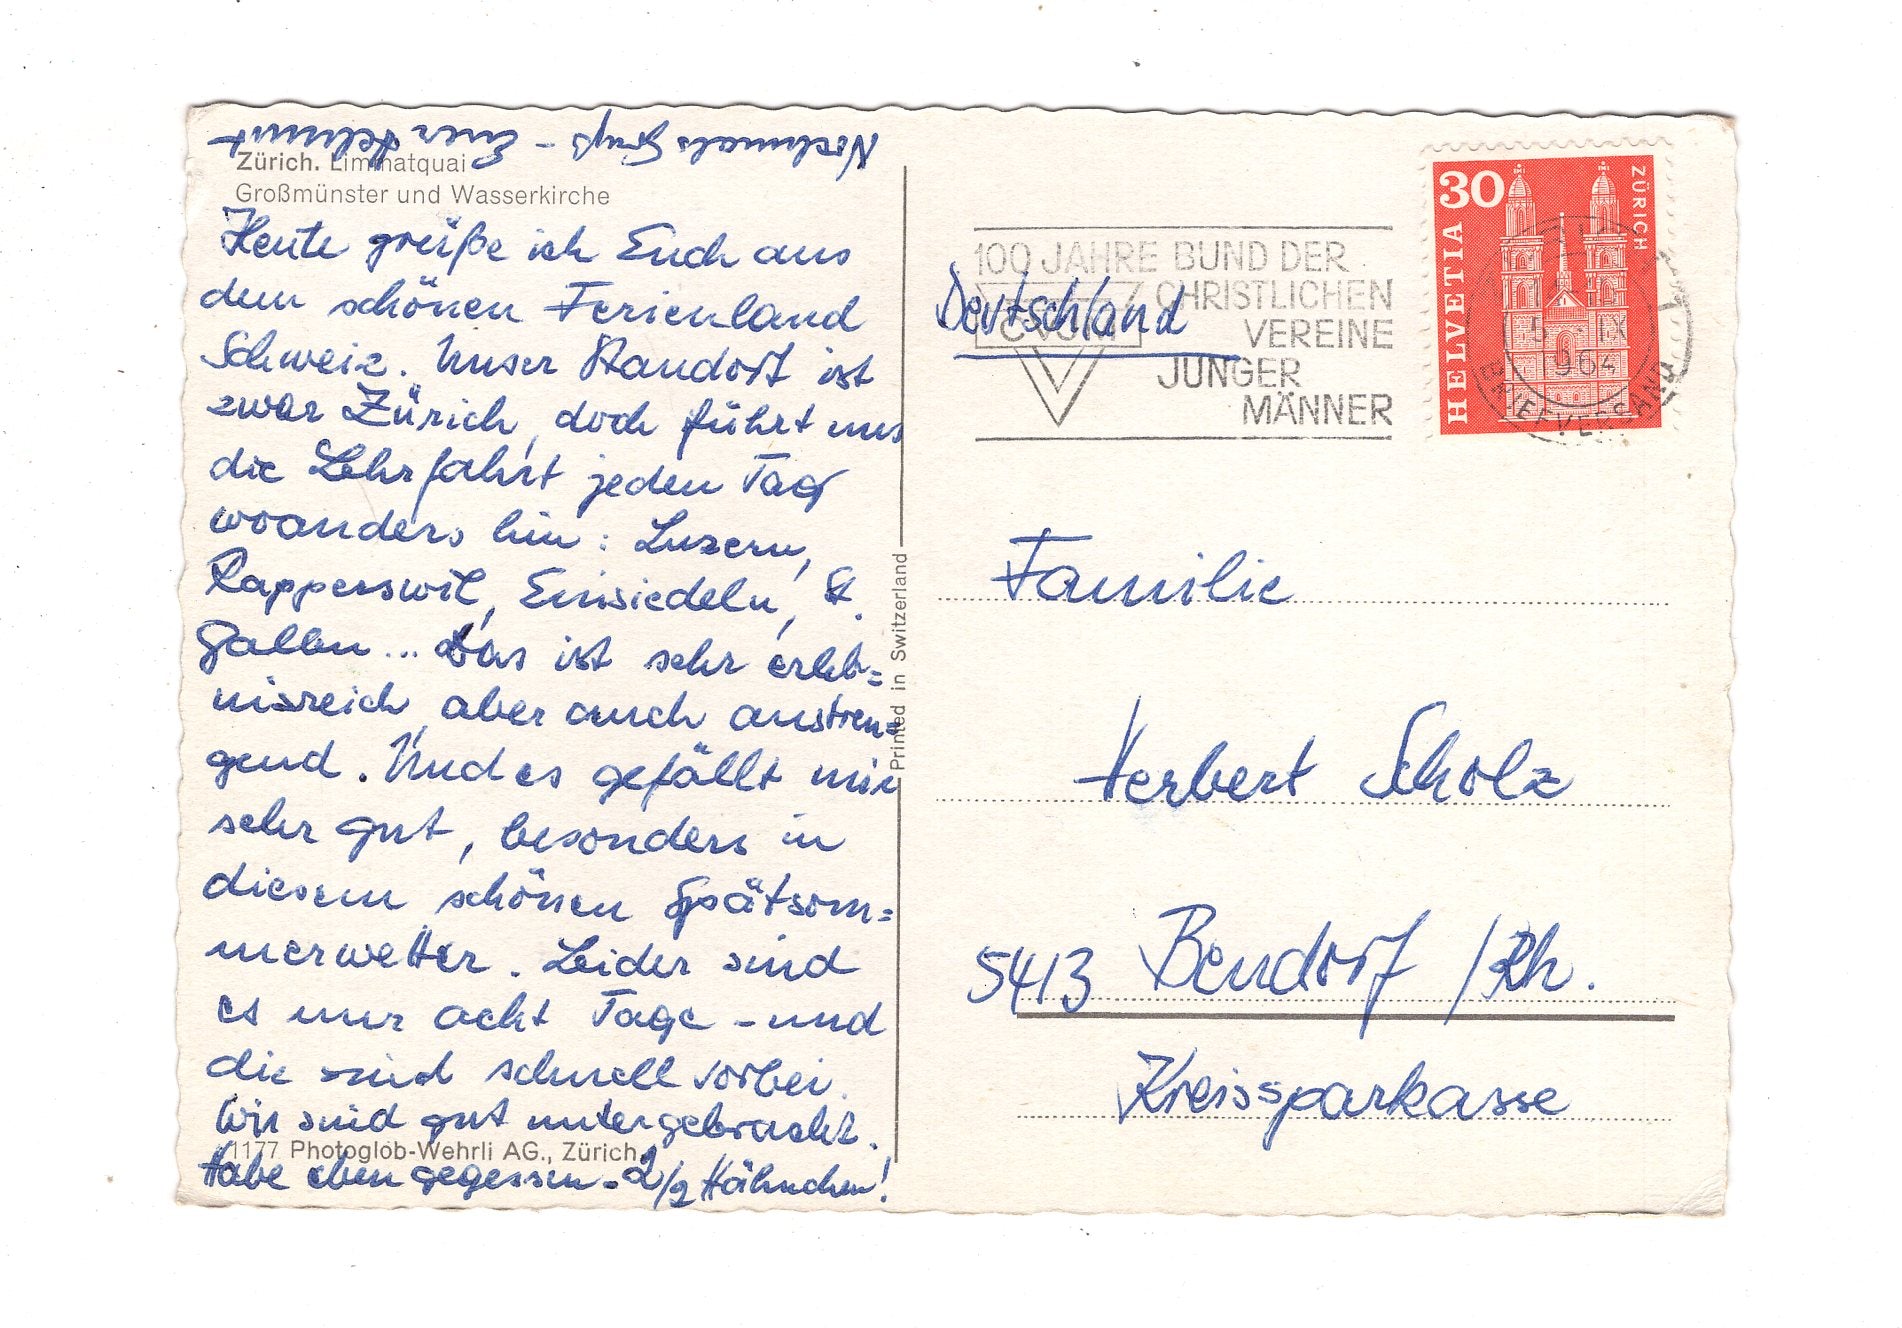 Nochmals Gruß - Euer Helmut
Zürich. Limmatquai
Großmünster und Wasserkirche
Heute grüße ich Euch aus
dem schönen Ferienland
Schweiz. Unser Standort ist
zwar Zürich, doch führt uns
die Lehrfahrt jeden Tag
woanders hin: Luzern,
Rapperswil, Einsiedeln, St.
Gallen... Das ist sehr erleb=
nisreich, aber auch anstren=
gend. Und es gefällt mir
sehr gut, besonders in
diesem schönen Spätsom=
merwetter. Leider sind
es nur acht Tage - und
die sind schnell vorbei.
Wir sind gut untergebracht.
1177 Photoglob-Wehrli AG., Zürich
Habe eben gegessen - 2/2 Hähnchen!
Printed in Switzerland
100 JAHRE BUND DER
CHRISTLICHEN
VEREINE
JUNGER
MÄNNER
CVJM
Deutschland
30
HELVETIA
ZÜRICH
5.-IX
1964
BRIEFVERSAND
Familie
Herbert Scholz
5413 Bendorf /Rh.
Kreissparkasse